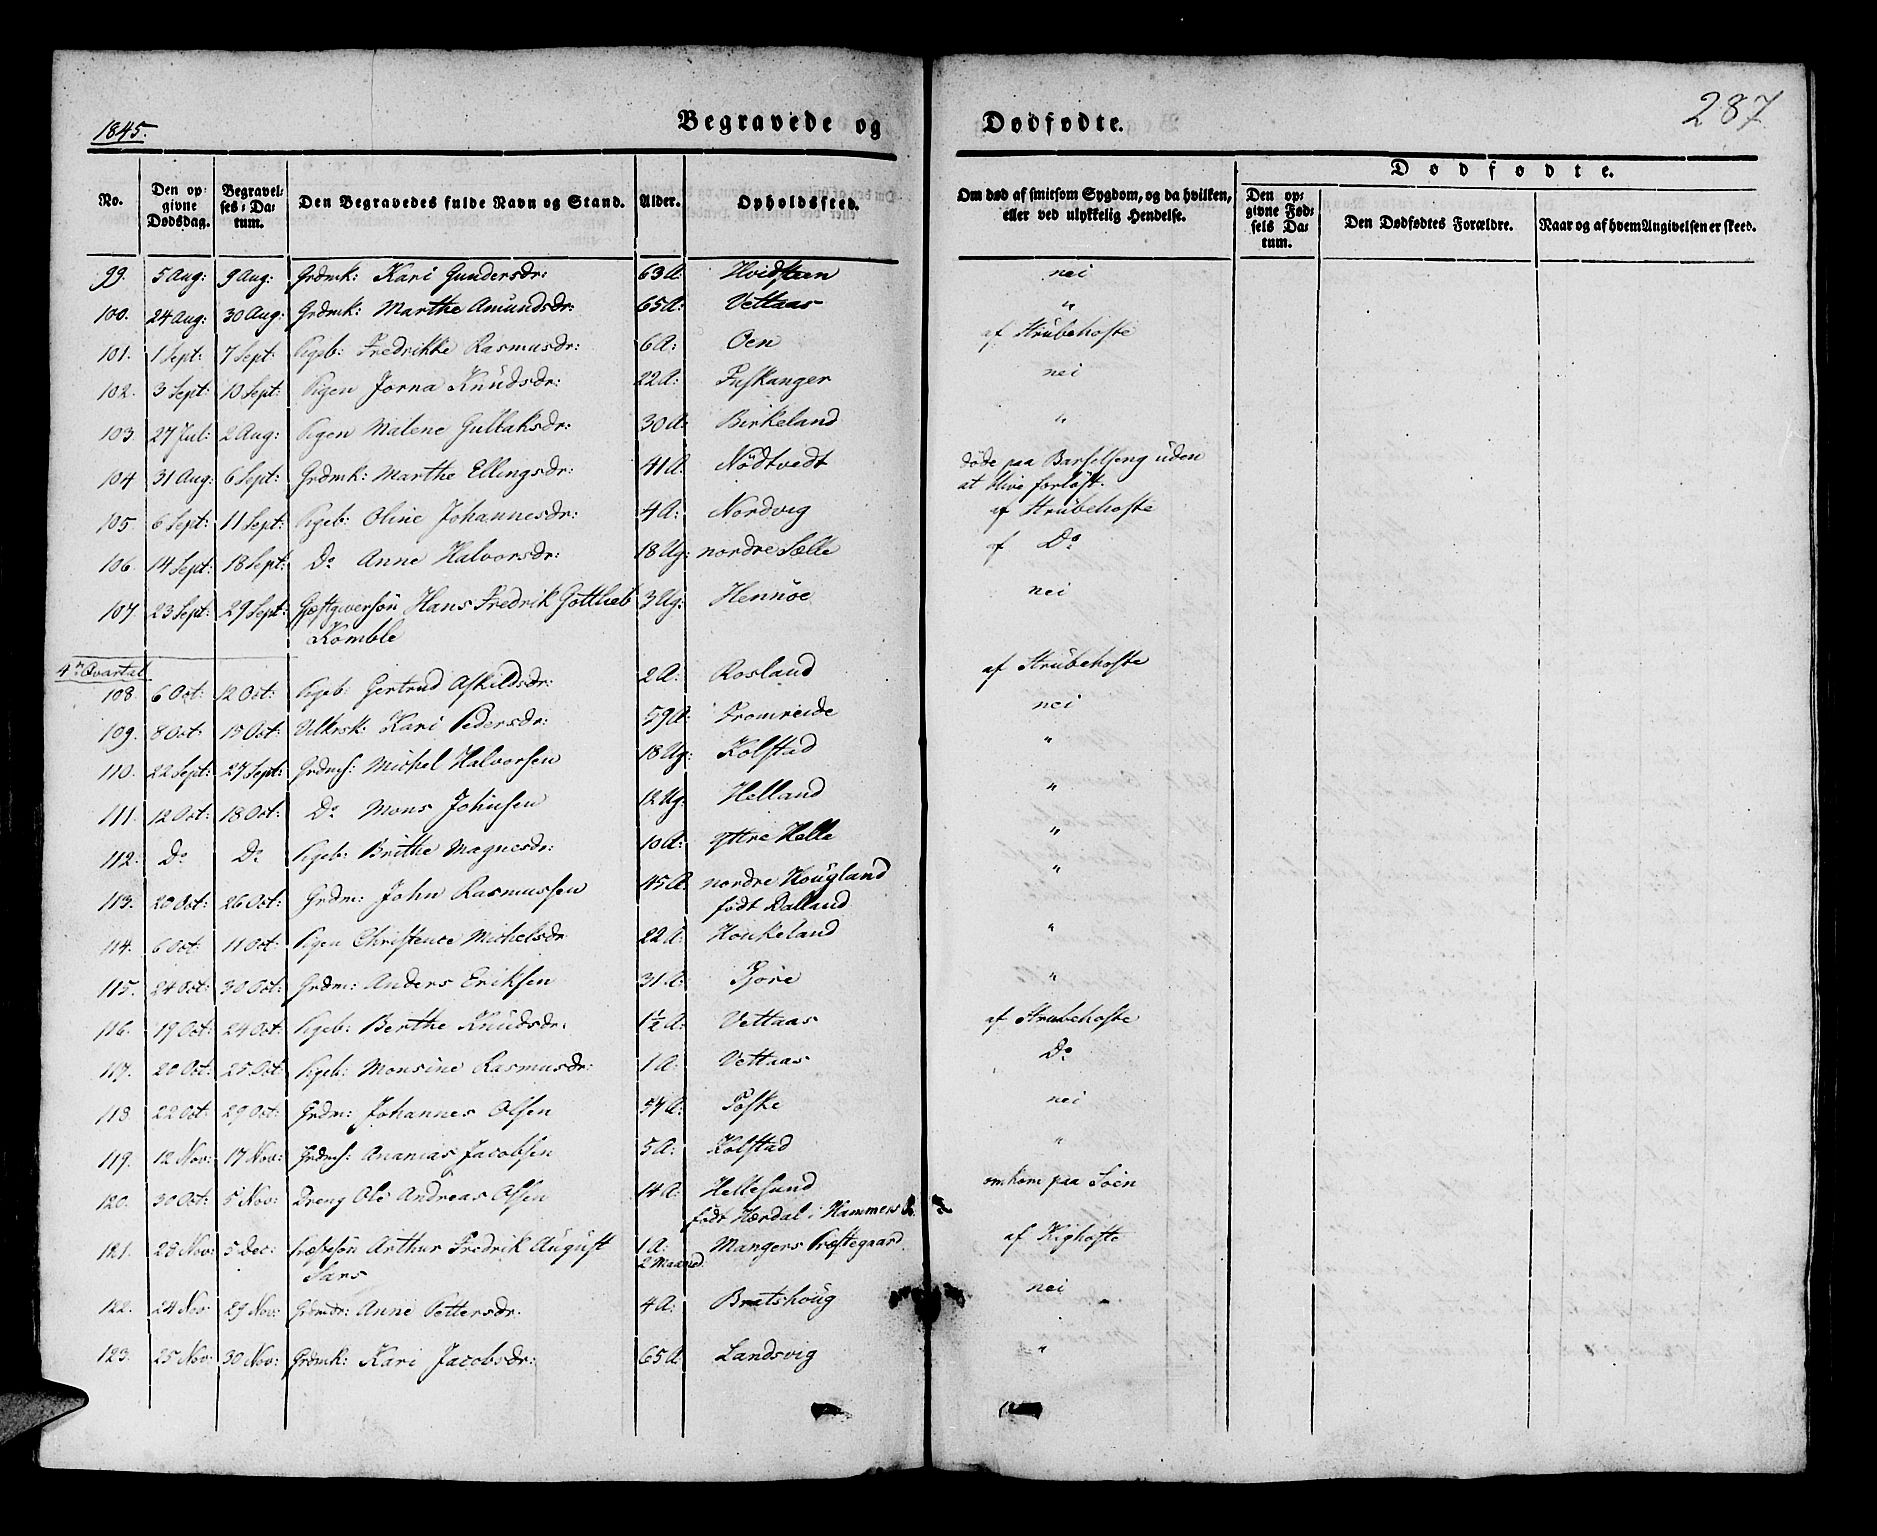 1845. Begravede og Dødfødte. 287
Dødfødte.
No. Den opgivne Dødsdag. Begravelses-Datum. Den Begravedes fulde Navn og Stand. Alder. Opholdssted. Om død af smitsom Sygdom, og da hvilken, eller ved ulykkelig Hendelse. Den opgivne Fødsels Datum. Den Dødfødtes Forældre. Naar og af hvem Angivelsen er skeed.
99. 5 Aug: 9 Aug: Grdmk: Kari Gundersdr: 63 A Hvidsteen nei
100. 24 Aug: 30 Aug: Grdmk: Marthe Amundsdr: 65 A: Vettaas "
101. 1 Sept: 7 Sept: Pigeb: Fredrikke Rasmusdr: 6 A: Oen af Strubehoste
102. 3 Sept: 10 Sept: Pigen Jorna Knudsdr: 22 A: Fuskanger nei
103. 27 Jul: 2 Aug: Pigen Malene Gullaksdr: 30 A: Birkeland "
104 31 Aug: 6 Sept: Grdmk: Marthe Ellingsdr: 41 A: Nödtvedt døde paa Barselseng uden
at blive forløst.
105 6 Sept: 11 Sept: Pigeb: Oline Johannesdr: 4 A: Nordvig af Strubehoste
106. 14 Sept: 18 Sept: Do Anne Halvorsdr: 18 Ug: nordre Sælle af Do
107. 23 Sept: 29 Sept: Gjæstgiversön Hans Fredrik Gottlieb 3 Ug: Hennöe nei
Komble
4de Qvartal
108. 6 Oct: 12 Oct: Pigeb: Gertrud Askildsdr: 2 A: Rosland af Strubehoste
109. 8 Oct: 15 Oct: Kari Pedersdr: 59 A: Fromreide nei
110. 22 Sept: 27 Sept: Grdms: Michel Halvorsen 18 Ug: Kolstad "
111. 12 Oct: 18 Oct: Do Mons Johnsen 12 Ug: Helland "
112. Do Do Pigeb: Brithe Magnesdr: 10 A: yttre Helle "
113. 20 Oct: 26 Oct: Grdm: John Rasmussen 45 A nordre Hougland "
født Dalland
114. 6 Oct 11 Oct: Pigen Christence Michelsdr 22 A: Houkeland "
115. 24 Oct: 30 Oct: Grdm: Anders Eriksen 31 A: Fjore "
116. 19 Oct: 24 Oct: Pigeb: Berthe Knudsdr: 1½ A: Vettaas af Strubehoste
117. 20 Oct: 25 Oct: Pigeb: Monsine Rasmusdr: 1 A: Vettaas Do
118 22 Oct: 29 Oct: Grdm: Johannes Olsen 57 A: Toske nei
119. 12 Nov: 17 Nov: Grdms: Ananias Jacobsen 5 A: Kolstad "
120. 30 Oct: 5 Nov: Dreng Ole Andreas Olsen 14 A: Hellesund omkom paa Söen
født Hærdal i Hammers
121. 28 Nov: 5 Dec: Præstesön Arthur Fredrik August 1 A: Mangers Præstegaard af Kighoste
Sars 2 Maaned.
122. 24 Nov 29 Nov: Grdmdr: Anne Pettersdr: 4 A: Bratshoug nei
123. 25 Nov: 30 Nov: Grdmk: Kari Jacobsdr: 65 A Landsvig "